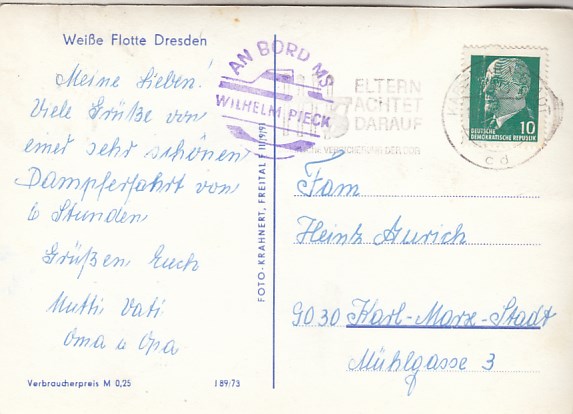 Weiße Flotte Dresden
Meine Lieben!
Viele Grüße von
einer sehr schönen
Dampferfahrt von
6 Stunden
Grüßen Euch
Mutti Vati
Oma u Opa
Verbraucherpreis M 0,25
I 89/73
FOTO-KRAHNERT, FREITAL
AN BORD MS
WILHELM PIECK
ELTERN
ACHTET
DARAUF
VERSICHERUNG DER DDR
10
DEUTSCHE
DEMOKRATISCHE REPUBLIK
cd
Fam
Heinz Aurich
9030 Karl-Marx-Stadt
Mühlgasse 3